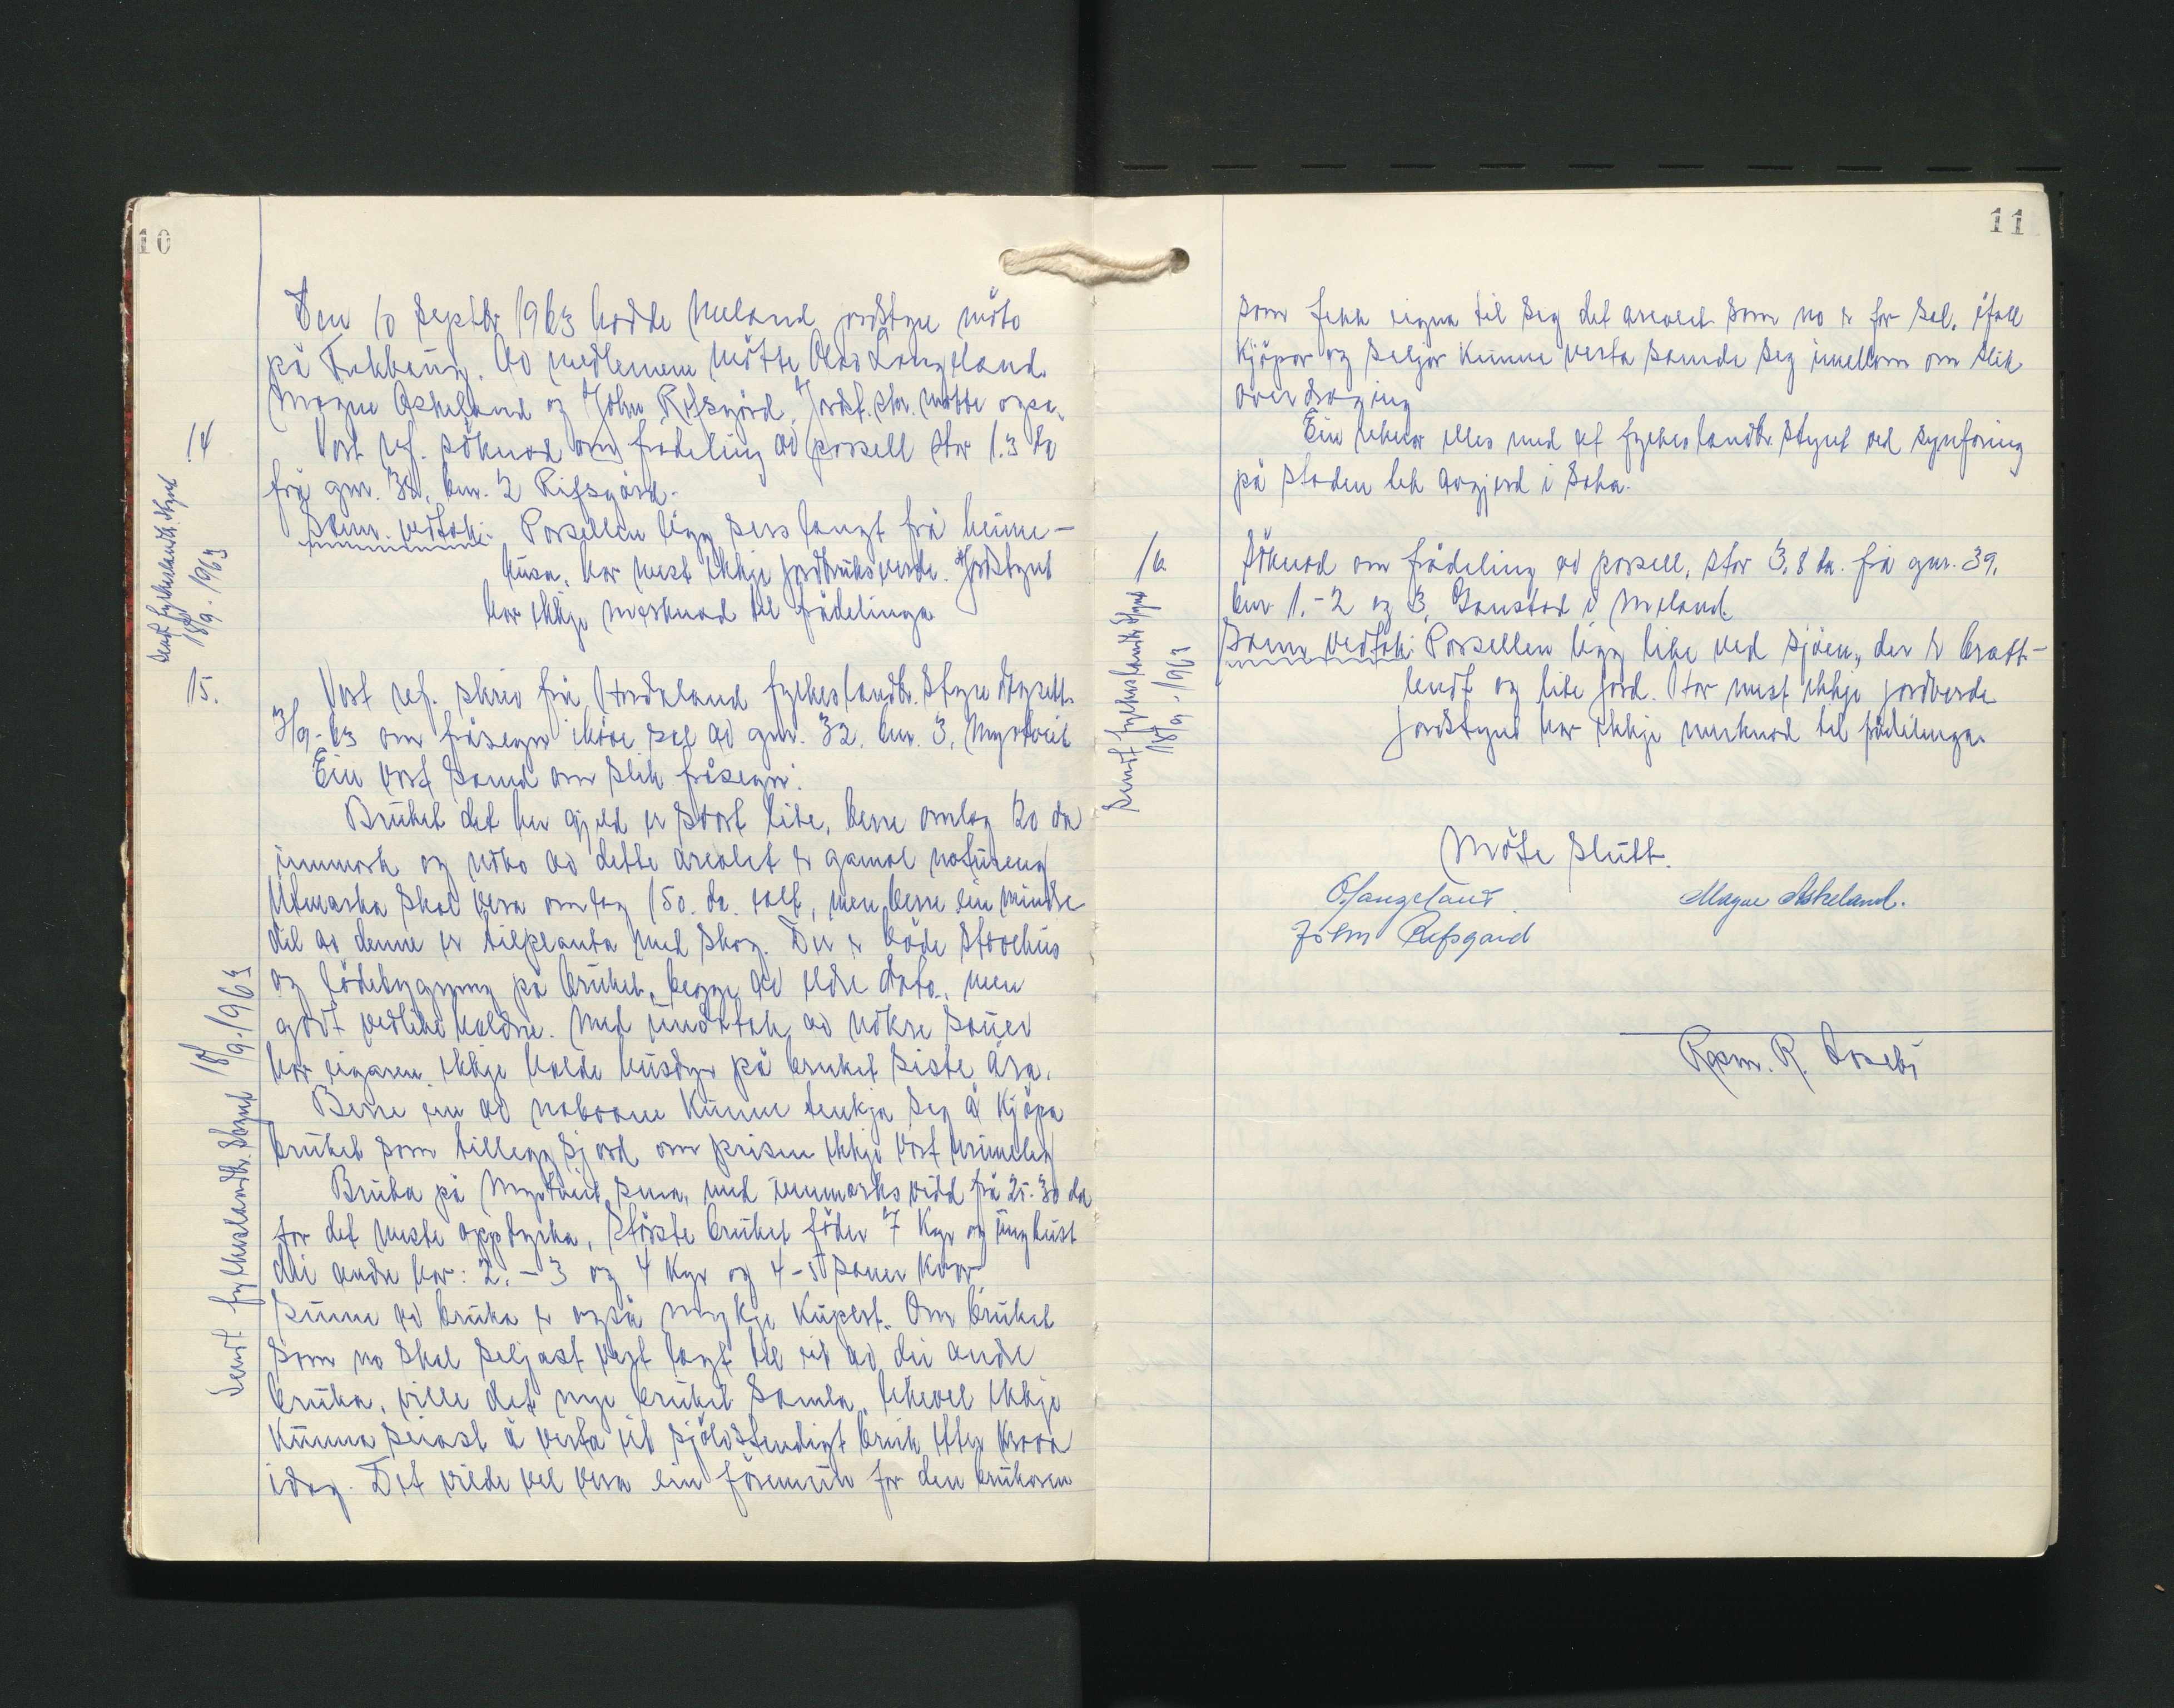 10
Den 10 Septbr 1963 hadde Meland jordstyre möte
på Frekhaug. Av medlemene mötte Olav Langeland.
Magne Askeland og John Refsgård. Jordst. skr. mötte også.
14
Vart ref. söknad om frådeling av parsell stor 1.3 da
frå gnr. 38. bnr. 2 Rifsgård.
Sendt fylkeslandbr. styret
18/9-1963
Sam. vedtak: Parsellen ligg sers langt frå heime-
husa, har mest ikkje jordbruksverde. Jordstyret
har ikkje merknad til frådelinga
15.
Vart ref. skriv frå Hordaland fylkeslandbr. styre dagsett
3/9-63 om fråsegn ikkje sal av gnr. 32. bnr. 3, Myrtveit
Ein vart samd om slik fråsegn:
Sendt fylkeslandbr. styret 18/9.1963
Bruket det her gjeld er svært lite, berre omlag 20 da
innmark og noko av dette arealet er gamal natureng
Utmarka skal vera omlag 150. da. alt, men berre ein mindre
del av denne er tilplanta med skog. Der er både stovehus
og lödebygning på bruket, begge av eldre dato, men
godt vedlikehaldne. Med unnatak av nokre sauer
har eigaren ikkje halde husdyr på bruket siste åra.
Berre ein av naboane kunne tenkja seg å kjöpa
bruket som tilleggsjord om prisen ikkje vart urimeleg
Bruka på Myrtveit små, med innmarksvidd frå 25-30 da
for det meste oppdyrka, störste bruket föder 7 kyr og ungbeist
dei andre har: 2. - 3 og 4 kyr og 4-5 sauer kvar
Sume av bruka er også mykje kupert. Om bruket
som no skal seljast vert lagt til eit av dei andre
bruka, ville det nye bruket samla, likevel ikkje
kunna seiast å verta eit sjölvstendigt bruk etter krava
idag. Det vilde vel vera ein föremun for den brukaren
11
som fekk eigna til seg det arealet som no er for sal, ifall
kjöpar og seljar kunne verta samde seg imellom om slik
overdraging
Ein reknar elles med at fylkeslandbr. styret ved synfaring
på staden lek avgjerd i saka.
16
Söknad om frådeling av parsell, stor 3,8 da. frå gnr. 39.
bnr 1.-2 og 3, Gaustad i Meland.
Sendt fylkeslandbr. styret
18/9-1963
Sam. vedtak: Parsellen ligg like ved sjöen, der er bratt-
lendt og lite jord. Har mest ikkje jordverde
Jordstyret har ikkje merknad til frådelinga.
Möte slutt.
O Langeland
Magne Askeland.
John Refsgard
Rasm. R.